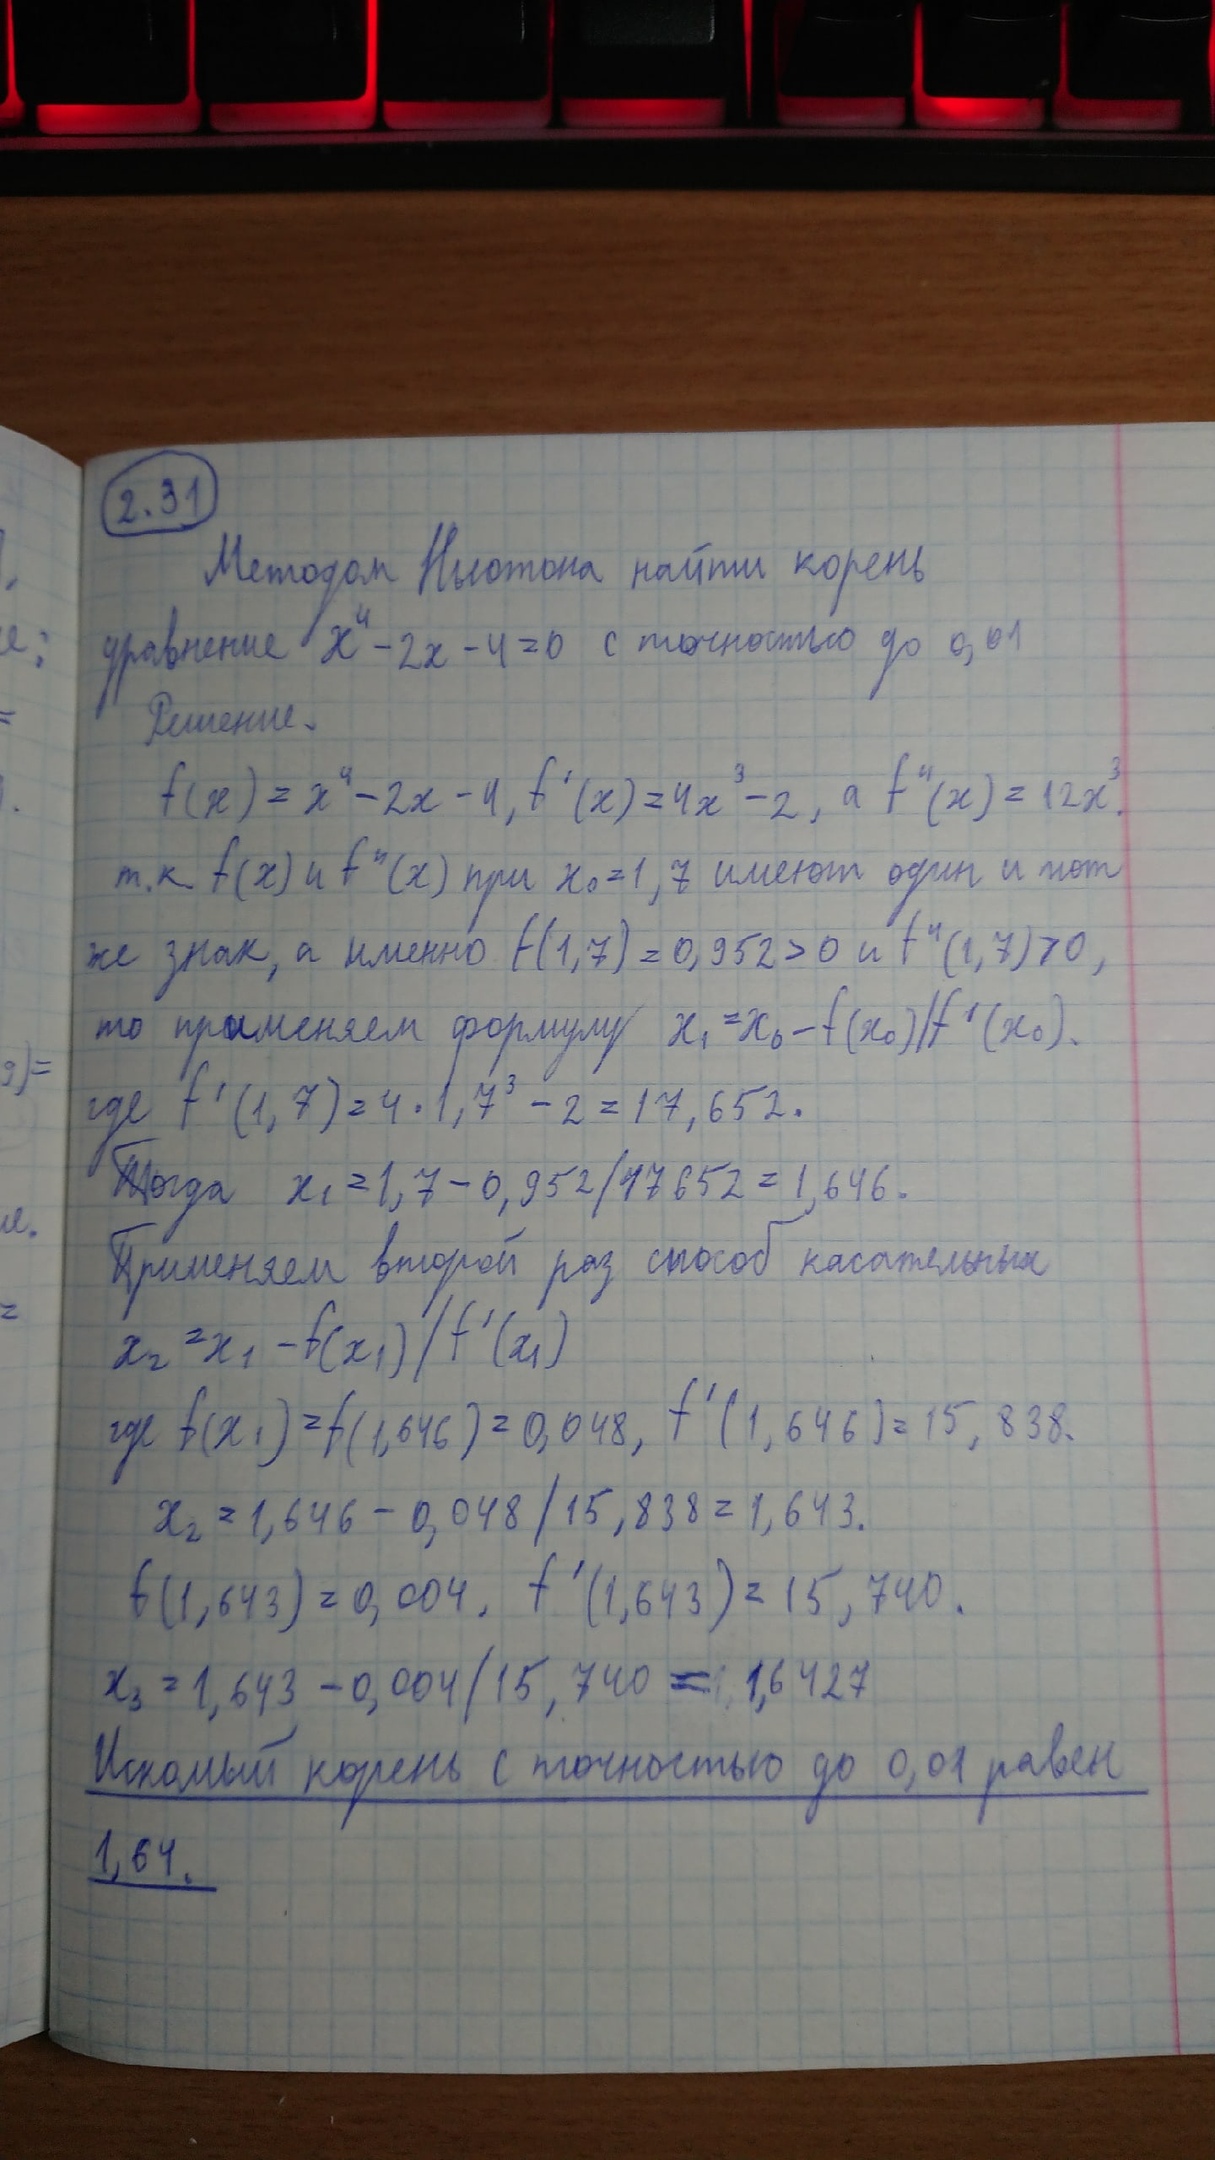 2.31
Методом Ньютона найти корень
уравнение x⁴ - 2x - 4 = 0 с точностью до 0,01
Решение.
f(x) = x⁴ - 2x - 4, f'(x) = 4x³ - 2, а f"(x) = 12x³.
т.к f(x) и f"(x) при x₀ = 1,7 имеют один и тот
же знак, а именно f(1,7) = 0,952 > 0 и f"(1,7) > 0,
то применяем формулу x₁ = x₀ - f(x₀)/f'(x₀).
где f'(1,7) = 4·1,7³ - 2 = 17,652.
Тогда x₁ = 1,7 - 0,952/17652 = 1,646.
Применяем второй раз способ касательных
x₂ = x₁ - f(x₁)/f'(x₁)
где f(x₁) = f(1,646) = 0,048, f'(1,646) = 15,838.
x₂ = 1,646 - 0,048/15,838 = 1,643.
f(1,643) = 0,004, f'(1,643) = 15,740.
x₃ = 1,643 - 0,004/15,740 = 1,6427
Искомый корень с точностью до 0,01 равен
1,64.